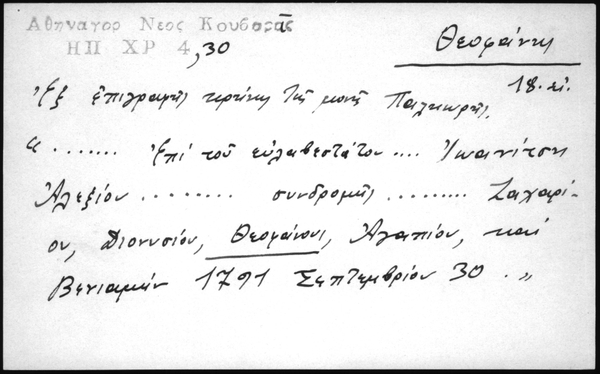 Αθηναγορ Νεος Κουβαρᾶς
ΗΠ ΧΡ 4,30
Θεοφάνης
18. αἰ.
Ἐξ ἐπιγραφῆς κρήνης τῆς μονῆς Παλιουρῆς.
« ....... Ἐπί τοῦ εὐλαβεστάτου .... Ἰωανίτση
Ἀλεξίου ......... συνδρομῆς ......... Ζαχαρί-
ου, Διονυσίου, Θεοφάνους, Ἀγαπίου, καί
Βενιαμήν 1791 Σεπτεμβρίου 30 . »